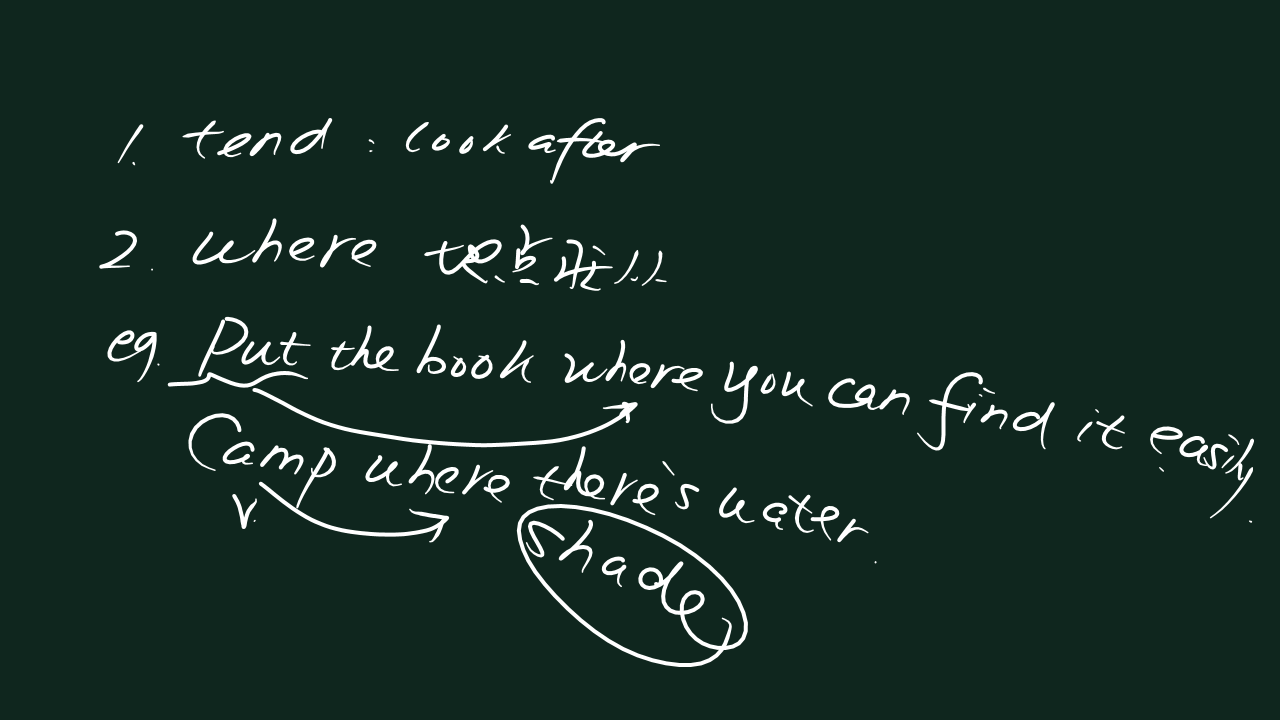 1. tend : look after
2. where 地点状山
eg. Put the book where you can find it easily.
Camp where there's water.
v.
shade